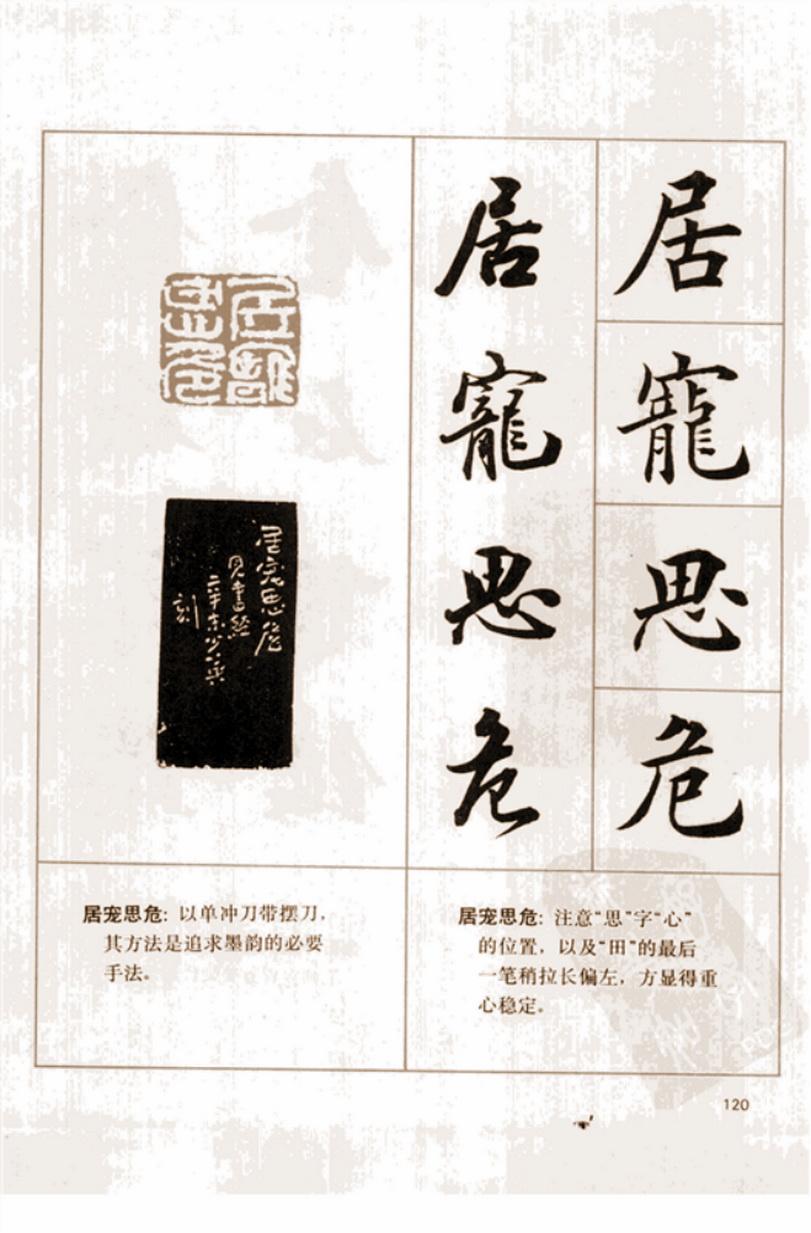 居
寵
思
危
居
寵
思
危
居寵
思危
居宠思危
见书经
刻
居宠思危：以单冲刀带摆刀，
其方法是追求墨韵的必要
手法。
居宠思危：注意“思”字“心”
的位置，以及“田”的最后
一笔稍拉长偏左，方显得重
心稳定。
120